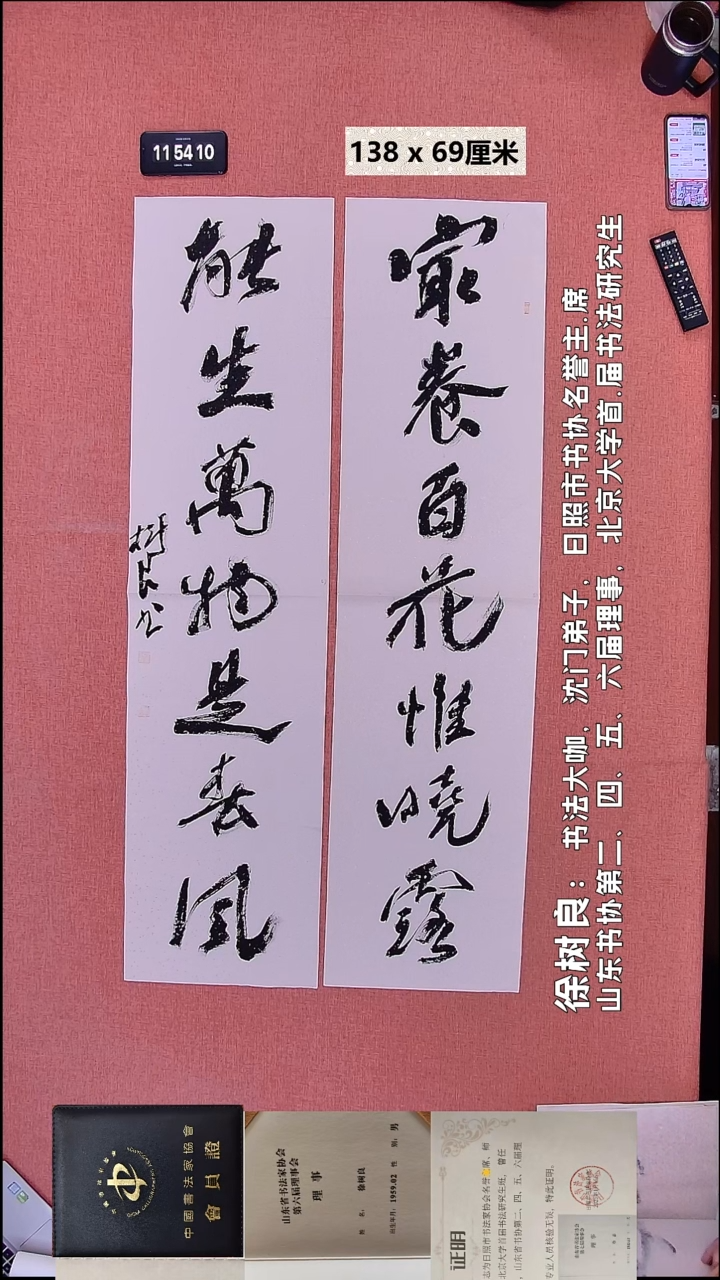 11 54 10
138 x 69厘米
寂養百花惟曉露
能生萬物是春風
樹良书
徐树良：书法大咖，沈门弟子，日照市书协名誉主.席
山东书协第二、四、五、六届理事，北京大学首.届书法研究生
中國書法家協會
會員證
山东省书法家协会
第六届理事会
理 事
姓 名：徐树良
出生年月：1959.02 性 别：男
证明
志为日照市书法家协会名誉席，师
北京大学首届书法研究生班，曾任
山东省书协第二、四、五、六届理
专业人员核验无误，特此证明。